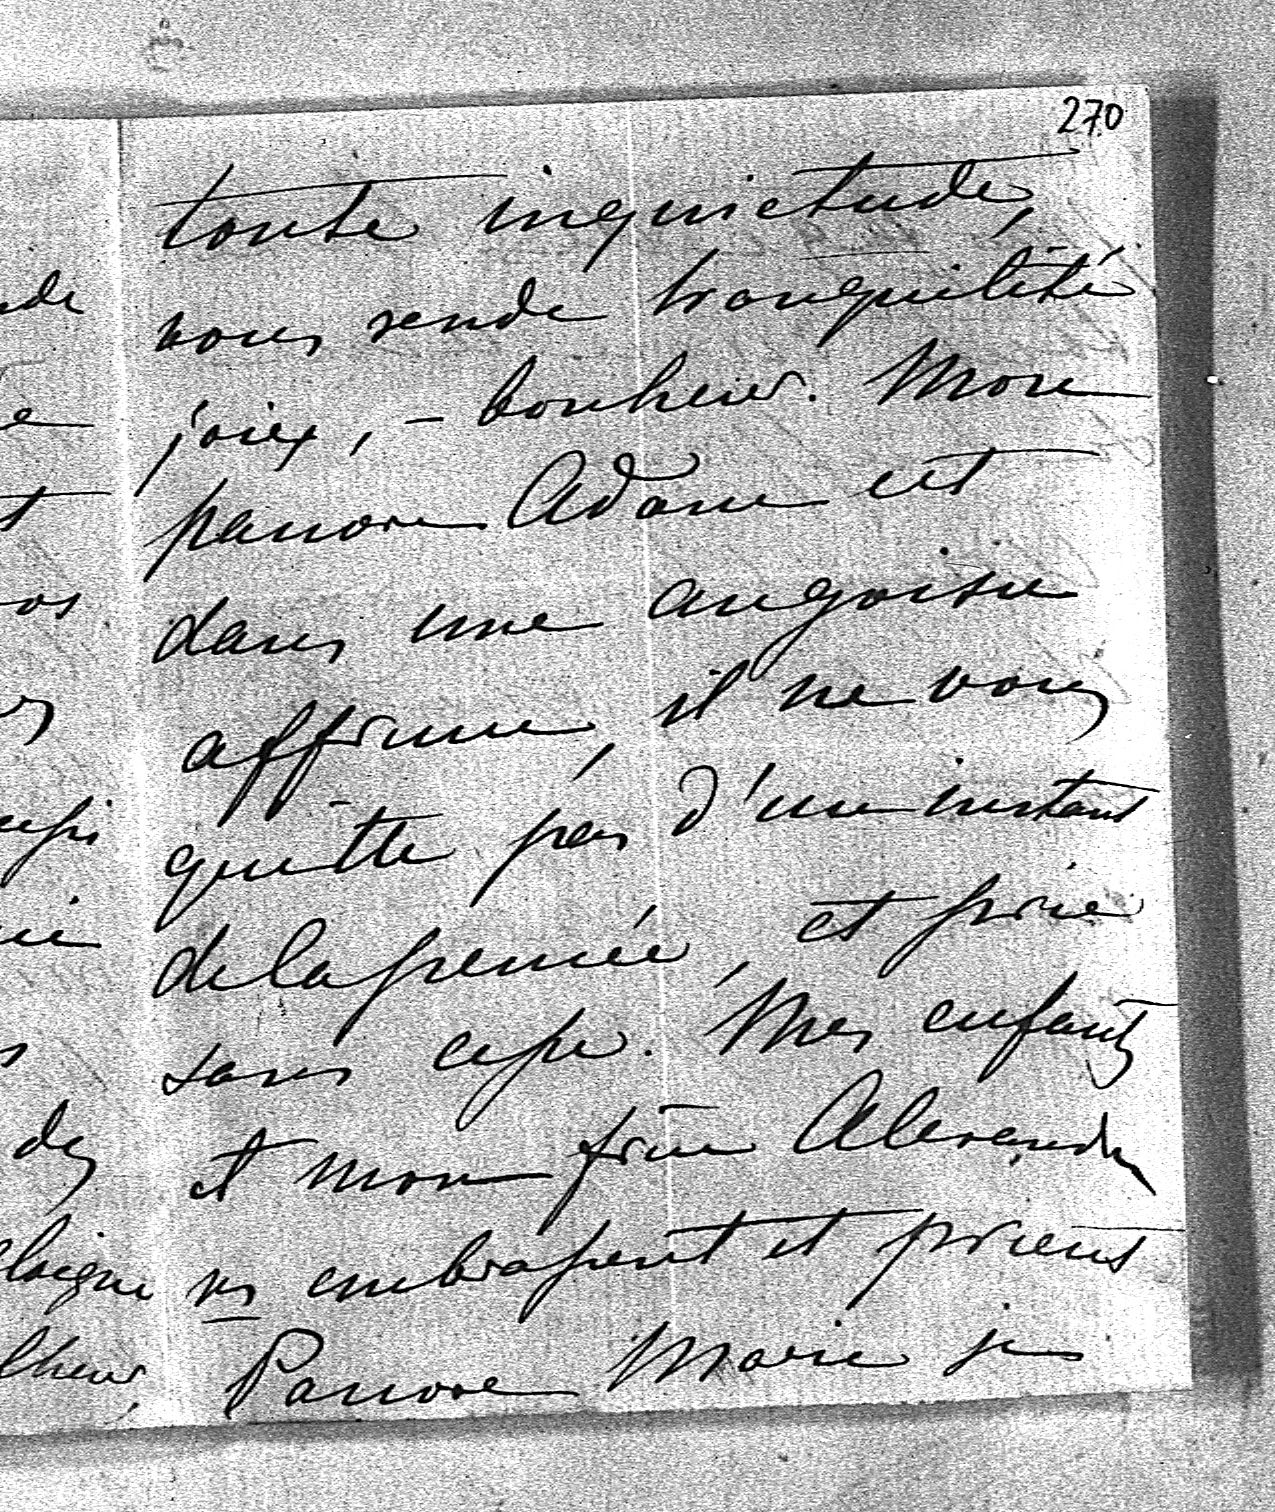 270
toute inquiétude,
vous rende tranquilité
joie, – bonheur. Mon
pauvre Adam est
dans une angoisse
affreuse, il ne vous
quitte pas d'un instant
de la pensée, et prie
sans cesse. Mes enfants
et mon frère Alexandre
vs embrassent et prient
Pauvre Marie je